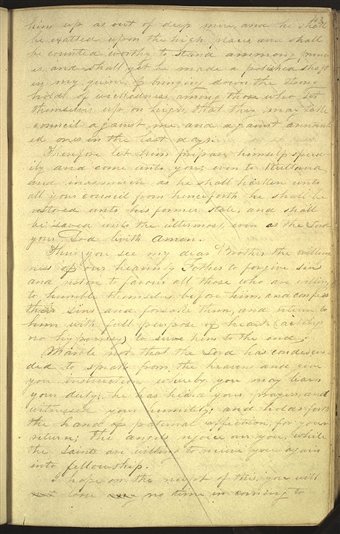 him up as out of deep mire and he shall
be exalted upon the high places and shall
be counted worthy to stand among princes
and shall yet be made a polished shaft
in my quiver of bringing down the strong
holds of wickedness among those who set
themselves up on high that they may take
council against me and against anoint
ed ones in the last days.
Therefore let him prepare himself speed
ily and come unto you even to Kirtland
and inasmuch as he shall hearken unto
all your council from henceforth he shall be
restored unto his former state, and shall
be saved unto the uttermost, even as the Lord
your God liveth Amen.
Thus you see my dear Brother the willing
ness of our heavenly Father to forgive sins
and restore to favour all those who are willing
to humble themselves before him, and confess
their sins and forsake them, and return to
him with full purpose of heart (acting
no hypocrisy) to serve him to the end.
Marvle not that the Lord has condescen
ded to speak from the heavens and give
you instructions whereby you may learn
your duty: he has heard your prayers and
witnessed your humility; and holds forth
the hand of paternal affection, for your
return; the angels rejoice over you, while
the saints are willing to receive you again
into fellowship.
I hope on the receipt of this, you will
lose no time in coming to